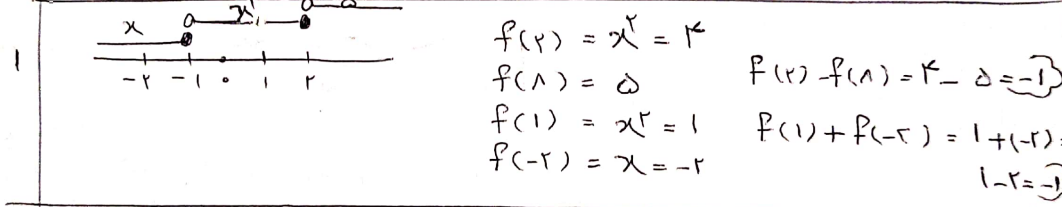 x x² ۵
-۲ -۱ ۰ ۱ ۲
۱
f(۲) = x² = ۴
f(۸) = ۵
f(۱) = x² = ۱
f(-۲) = x = -۲
f(۲) - f(۸) = ۴ - ۵ = -۱
f(۱) + f(-۲) = ۱ + (-۲) =
۱ - ۲ = -۱